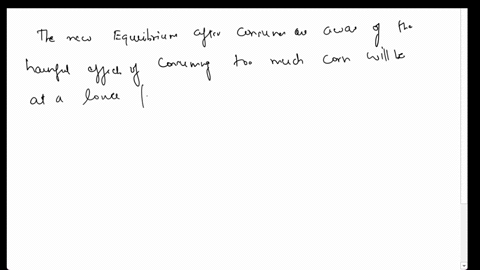 The new Equilibrium after consumers are aware of the
harmful effects of consuming too much corn will be
at a lower